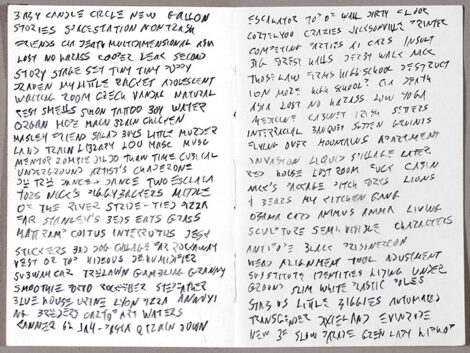 BABY CANDLE CIRCLE NEW GALLON
STORIES SPACESTATION NONTRASH
FRIENDS CIA DEATH MULTIDIMENSIONAL ASIA
LOST NO HAZASS ROOFER LEAK SECOND
STORY STAGE SET TINY TINY PUPPY
DRAVEN MY LITTLE RACKET ADOLESCENT
WAITING ROOM CZECH VANDAL NATURAL
REST SHELLS SIMON TATTOO BOY WATER
ORGAN HOPE MAIN BRAIN CHICKEN
HARLEY FRIEND SALAD BOYS LITTLE MURDER
LAND TRAIN LIBRARY LOU MASC MUSC
MENTOR ZOMBIE DILDO THAN TIME CUBICAL
UNDERGROUND ARTIST'S CHAPERONE
DANCE DANCE TWO ESCALA
TORS NICK'S PIGGYBACKERS MIDDLE
OF THE RIVER STRIDE TIED PIZZA
EAR STANLEY'S BEDS EATS GRASS
MATT RAMP COITUS INTERRUPTUS
STICKERS BAD DOG COLLAGE FAR ROCKAWAY
VEST OR TO HIDEOUS DEHUMIDIFIER
SUBWAY CAR TRELAWN GAMBLING GRANNY
SMOOTHIE TOGETHER STEPFATHER
BLUE HOUSE URINE LYON PIZZA ANNOYI
NG BREDERS ART WATERS
BANNER DOWN
ESCALATOR TO OF WALL DIRTY FLOOR
CORTELYOU CRAZIES JACKSONVILLE PRINTER
COMPETING PARTIES AI CARDS INSULT
BIG FOREST HILLS DERBY WALK NICK
THOSE LAW FIRMS HIGH SCHOOL DESTRUCT
ION MORE HIGH SCHOOL? CIA DEATH
ASIA LOST NO HAZASS LOW YOGA
MEDICINE CABINET IRISH SETTERS
INTERRACIAL BANQUET SUTTON GRUNTS
FLYING OVER MOUNTAINS APARTMENT
INVASION LIQUID SPILLAGE LATER
RED HOUSE LOST ROOM FUCK CABIN
NICK'S PACKAGE PITCH BOYS LIONS
& BEARS MY KITCHEN GANG
OBAMA CARD ANIMUS ANIMA LIVING
SCULPTURE SEMI VISIBLE CHARACTERS
ANTIPOPE BLACK
HEAD ALIGNMENT TOOL ADJUSTMENT
SUBSTITUTE IDENTITIES LIVING UNDER
GROUND SLIM WHITE PLASTIC POLES
STAB VS LITTLE BIGGIES AUTOMATED
TRANSGENDER DIXIELAND EVINRUDE
NEW SLOW LAZY